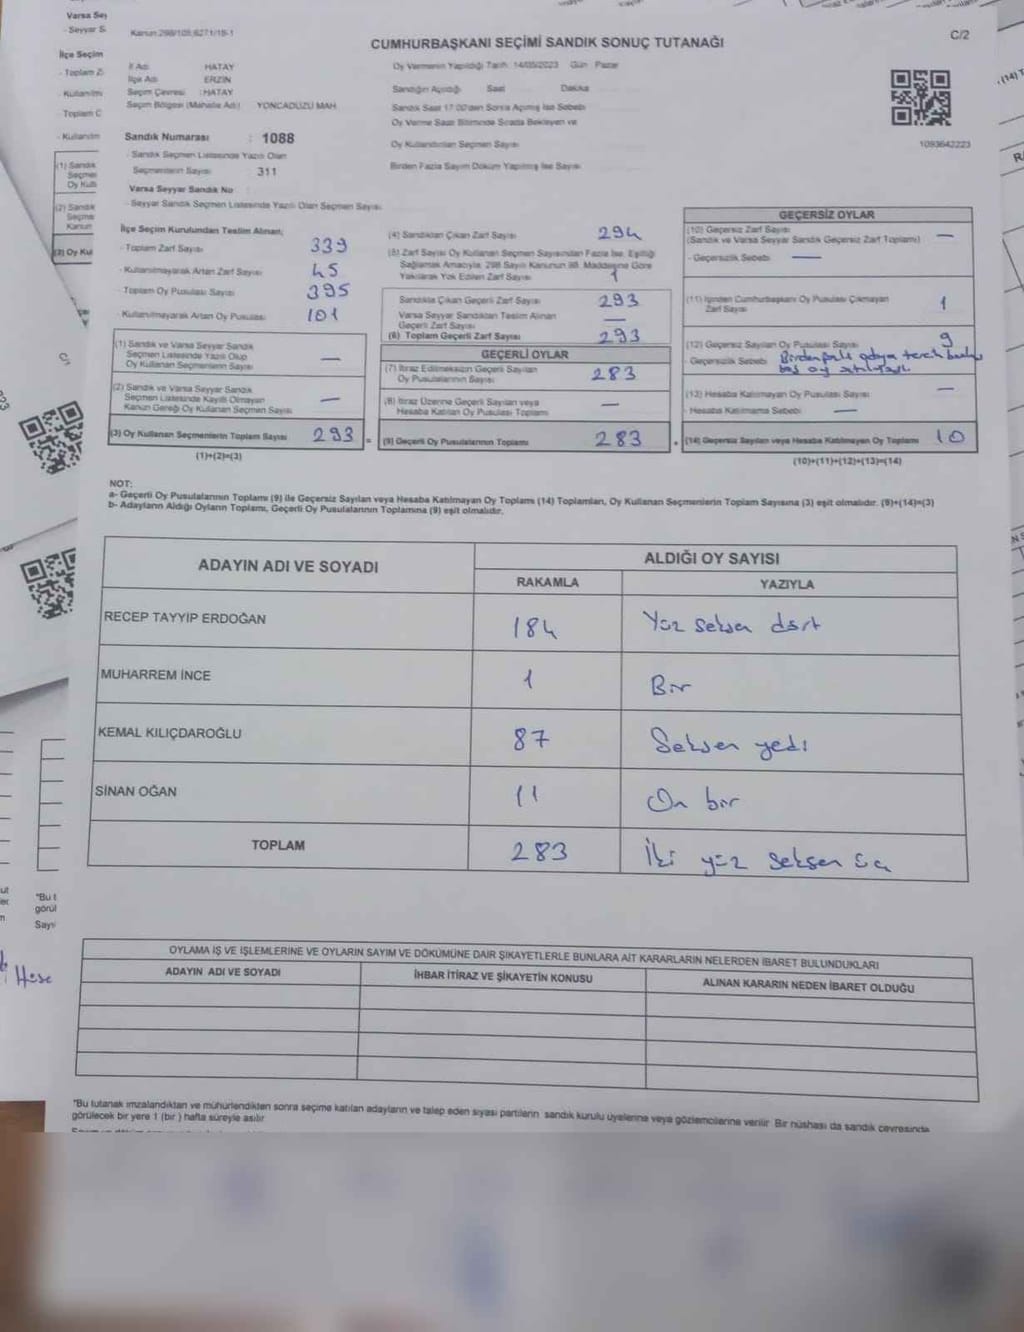 Kanun 298/105,6271/18-1
C/2
CUMHURBAŞKANI SEÇİMİ SANDIK SONUÇ TUTANAĞI
İl Adı HATAY
İlçe Adı ERZİN
Seçim Çevresi :HATAY
Seçim Bölgesi (Mahalle Adı) YONCADÜZÜ MAH.
Oy Vermenin Yapıldığı Tarih: 14/05/2023 Gün Pazar
Sandığın Açıldığı Saat Dakika
Sandık Saat 17.00'den Sonra Açılmış İse Sebebi
Oy Verme Saat Bitiminde Sırada Bekleyen ve
Oy Kullandırılan Seçmen Sayısı
Birden Fazla Sayım Döküm Yapılmış İse Sayısı
1093642223
Sandık Numarası : 1088
- Sandık Seçmen Listesinde Yazılı Olan
Seçmenlerin Sayısı 311
Varsa Seyyar Sandık No
- Seyyar Sandık Seçmen Listesinde Yazılı Olan Seçmen Sayısı
İlçe Seçim Kurulundan Teslim Alınan;
- Toplam Zarf Sayısı 339
- Kullanılmayarak Artan Zarf Sayısı 45
- Toplam Oy Pusulası Sayısı 395
- Kullanılmayarak Artan Oy Pusulası 101
(1) Sandık ve Varsa Seyyar Sandık
Seçmen Listesinde Yazılı Olup
Oy Kullanan Seçmenlerin Sayısı —
(2) Sandık ve Varsa Seyyar Sandık
Seçmen Listesinde Kayıtlı Olmayan
Kanun Gereği Oy Kullanan Seçmen Sayısı —
(3) Oy Kullanan Seçmenlerin Toplam Sayısı 293
(1)+(2)=(3)
(4) Sandıktan Çıkan Zarf Sayısı 294
(5) Zarf Sayısı Oy Kullanan Seçmen Sayısından Fazla İse, Eşitliği
Sağlamak Amacıyla, 298 Sayılı Kanunun 98. Maddesine Göre
Yakılarak Yok Edilen Zarf Sayısı 1
Sandıkta Çıkan Geçerli Zarf Sayısı 293
Varsa Seyyar Sandıktan Teslim Alınan
Geçerli Zarf Sayısı —
(6) Toplam Geçerli Zarf Sayısı 293
GEÇERLİ OYLAR
(7) İtiraz Edilmeksizin Geçerli Sayılan
Oy Pusulalarının Sayısı 283
(8) İtiraz Üzerine Geçerli Sayılan veya
Hesaba Katılan Oy Pusulası Toplamı —
(9) Geçerli Oy Pusulalarının Toplamı 283
GEÇERSİZ OYLAR
(10) Geçersiz Zarf Sayısı
(Sandık ve Varsa Seyyar Sandık Geçersiz Zarf Toplamı) —
- Geçersizlik Sebebi —
(11) İçinden Cumhurbaşkanı Oy Pusulası Çıkmayan
Zarf Sayısı 1
(12) Geçersiz Sayılan Oy Pusulası Sayısı 9
Geçersizlik Sebebi
(13) Hesaba Katılmayan Oy Pusulası Sayısı —
- Hesaba Katılmama Sebebi —
(14) Geçersiz Sayılan veya Hesaba Katılmayan Oy Toplamı 10
(10)+(11)+(12)+(13)=(14)
NOT:
a- Geçerli Oy Pusulalarının Toplamı (9) ile Geçersiz Sayılan veya Hesaba Katılmayan Oy Toplamı (14) Toplamları, Oy Kullanan Seçmenlerin Toplam Sayısına (3) eşit olmalıdır. (9)+(14)=(3)
b- Adayların Aldığı Oyların Toplamı, Geçerli Oy Pusulalarının Toplamına (9) eşit olmalıdır.
ADAYIN ADI VE SOYADI
ALDIĞI OY SAYISI
RAKAMLA YAZIYLA
RECEP TAYYİP ERDOĞAN 184 Yüz seksen dört
MUHARREM İNCE 1 Bir
KEMAL KILIÇDAROĞLU 87 Seksen yedi
SİNAN OĞAN 11 On bir
TOPLAM 283 İki yüz seksen üç
OYLAMA İŞ VE İŞLEMLERİNE VE OYLARIN SAYIM VE DÖKÜMÜNE DAİR ŞİKAYETLERLE BUNLARA AİT KARARLARIN NELERDEN İBARET BULUNDUKLARI
ADAYIN ADI VE SOYADI İHBAR İTİRAZ VE ŞİKAYETİN KONUSU ALINAN KARARIN NEDEN İBARET OLDUĞU
"Bu tutanak imzalandıktan ve mühürlendikten sonra seçime katılan adayların ve talep eden siyasi partilerin sandık kurulu üyelerine veya gözlemcilerine verilir. Bir nüshası da sandık çevresinde
görülecek bir yere 1 (bir ) hafta süreyle asılır